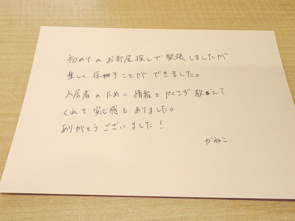 初めてのお部屋探しで緊張しましたが
楽しく探すことができました。
入居者のために情報をかくさず教えて
くれて安心感もありました。
ありがとうございました！
かねこ